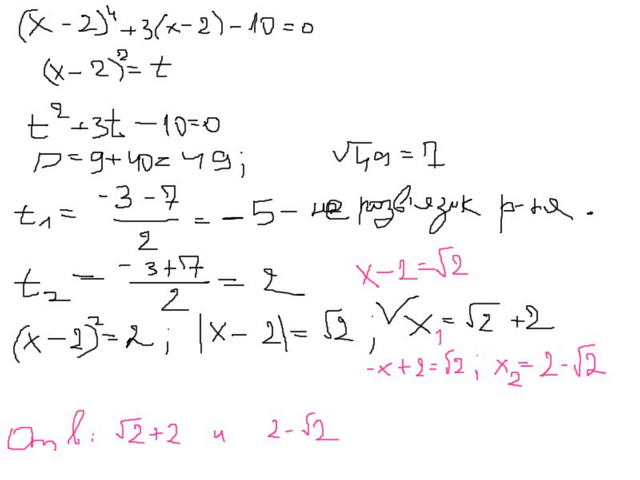 (x-2)⁴+3(x-2)-10=0
(x-2)²=t
t²+3t-10=0
D=9+40=49; √49=7
t₁= (-3-7)/2 = -5 - не розв'язок р-ня.
t₂ = (-3+7)/2 = 2 x-2=√2
(x-2)²=2; |x-2|=√2; √x₁=√2+2
-x+2=√2; x₂=2-√2
Отв: √2+2 и 2-√2